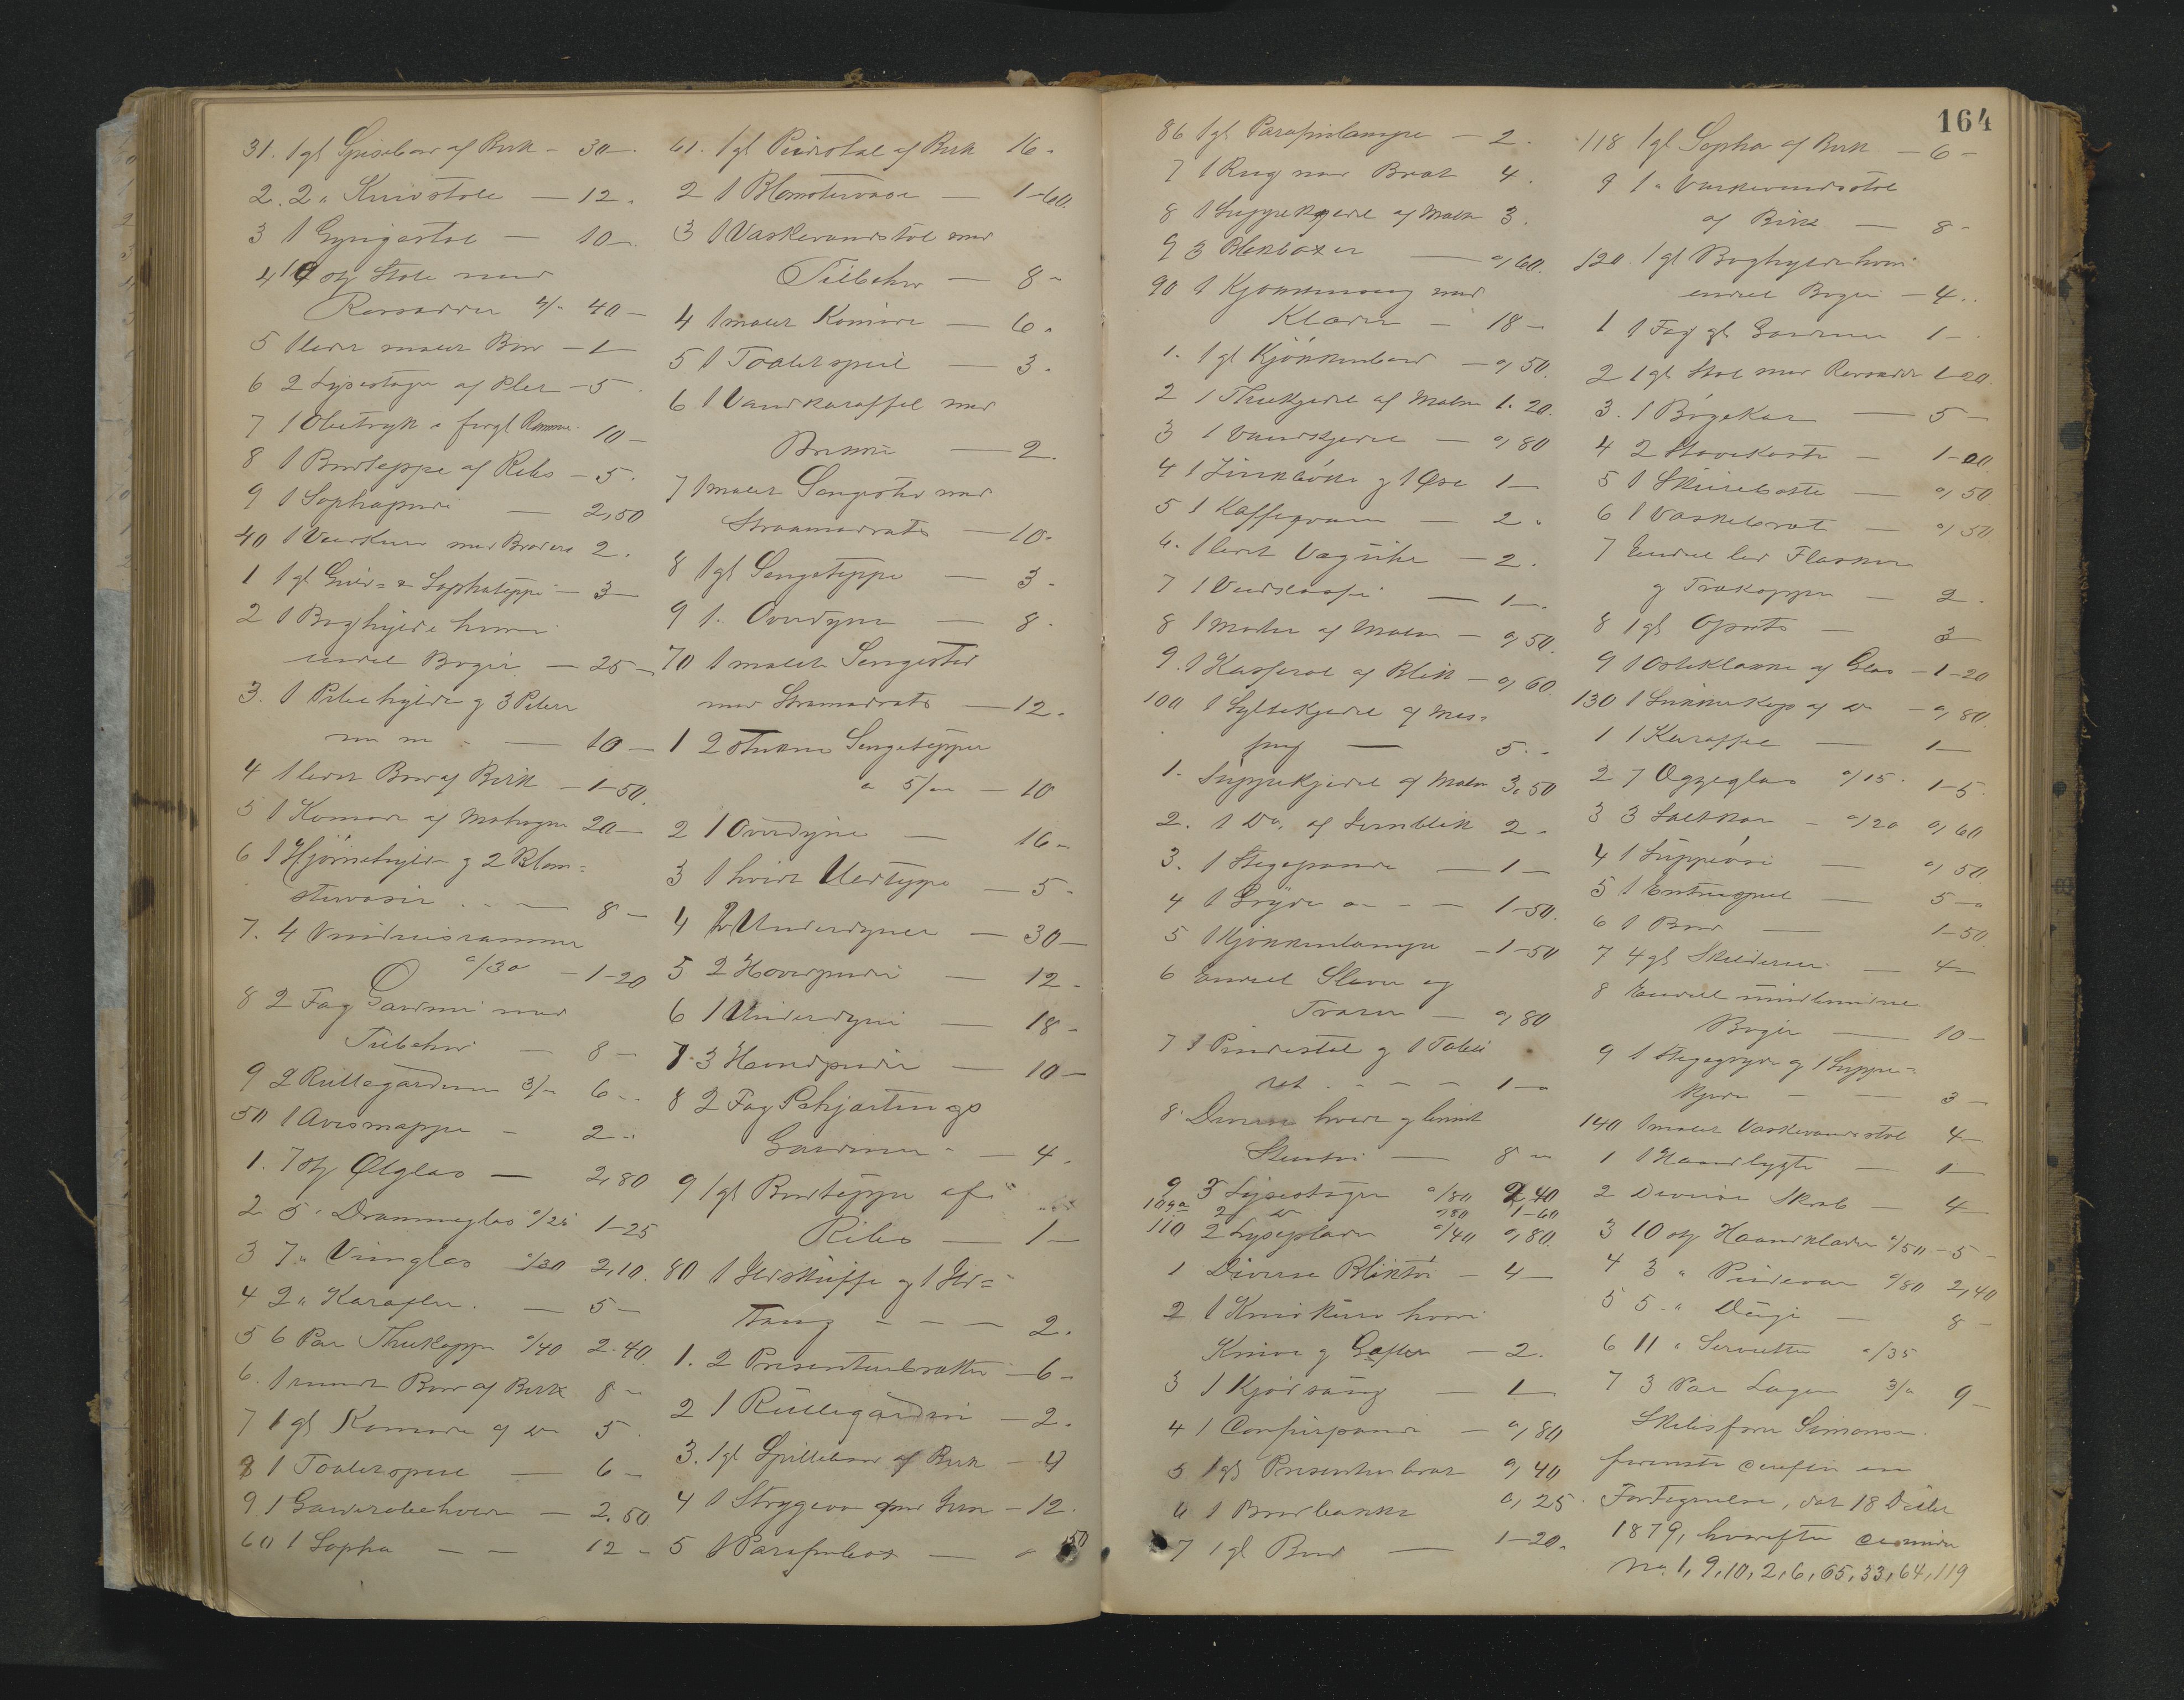 31. 1 gl Spisebord af Birk - 30 -
2. 2 " Kurvstole - 12 "
3 1 Gyngestol - 10 -
4 10 stk Stole med
Rorsæder 4/- 40 -
5 1 lidet malet Bord - 1 -
6 2 Lysestager af Plet - 5 -
7 1 Olietryk i forgl Ramme 10 -
8 1 Bordteppe af Ribs - 5 -
9 1 Sophapude - 2,50
40 1 Vedkurv med Broderi 2 .
1 1 gl Gulv- & Sophateppe - 3 -
2 1 Boghylde hvori
endel Bøger - 25 -
3. 1 Pibehylde g 3 Piber
m m - - 10 -
4 1 lidet Bord af Birk - 1-50.
5 1 Komode af Mahogni 20 -
6 1 Hjörnehylde g 2 Blom=
stervaser .. - 8 -
7. 4 Vinduesrammer
a/30 - 1-20
8 2 Fag Gardiner med
Tilbehør - 8 -
9 2 Rüllegardiner 3/- 6 -
50 1 Avismappe - 2 -
1. 7 stk Ølglas - 2,80
2 5 " Drammeglas a/25 1-25
3 7 " Vinglas a/30 2,10.
4 2 " Karafler - 5 -
5 6 Par Theekopper a/40 2.40.
6. 1 rundt Bord af Birk 8 -
7 1 gl Komode af do 5 .
8 1 Toiletspeil - 6 -
9 1 Garderobeholder - 2.50
60 1 Sopha - - 12 -
61. 1 gl Pidestal af Birk 16 -
2 1 Blomstervase - 1-60.
3 1 Vaskevandstol med
Tilbehør - 8 -
4 1 malet Komode - 6 "
5 1 Toiletspeil - 3 -
6 1 Vandkaraffel med
Brikke - 2.
7 1 malet Sengested med
Straamadrats - 10 -
8 1 gl Sengeteppe - 3 -
9 1 " Overdyne - 8 -
70 1 malet Sengested
med Stramadrats - 12 -
1 2 Sengetepper
a 5/- - 10
2 1 Overdyne - 16 -
3 1 hvidt Uldteppe - 5 -
4 2 Underdyner - 30 -
5 2 Hovedpuder - 12 -
6 1 Underdyne - 18 -
7. 3 Hovedpuder - 10 -
8 2 Fag
Gardiner - - 4 -
9 1 gl Bordteppe af
Ribs - 1 -
80 1 Ildskuffe g 1 Ild=
tang - - - 2.
1. 2 Presenterbrætter - 6 -
2 1 Rüllegardin - 2 -
3. 1 gl Spillebord af Birk - 4
4 1 Strygeovn med Jern - 12.
5 1 Parafinbox - " 50
164
86 1 gl Parafinlampe - 2.
7 1 Rug med Bræt 4.
8 1 Suppekjedel af Malm 3.
9 3 Blikboxer - 0,60.
90 1 med
Klæder - 18 -
1. 1 gl Kjökkenbord - 0,50.
2 1 Theekjedel af Malm 1.20.
3 1 Vandkjedel - 0,80
4 1 Zinkbötte g 1 Øse 1 -
5 1 Kaffeqværn - 2 "
6. 1 lidet Vægühr - 2.
7 1 Vedkasse - 1 -
8 1 Morter af Malm - 0,50.
9. 1 Kasserol af Blik - 0,60.
100 1 Syltekjedel af Mes=
sing - 5 - "
1. Suppekjedel af Malm 3,50
2. 1 Do. af Jernblik 2 -
3. 1 Stegepande - 1 -
4 1 Gryde - - 1-50.
5 1 Kjökkenlampe - 1-50
6 Endel Slever og
Tvarer - 0,80
7 1 Pindestol g 1 Tabu
ret . - - - 1 -
8. Diverse hvidt g blaat
Stentöi - 8 -
9 3 Lysestager a/80 2.40
109a 2 do a/80 1-60
110 2 Lyseplader a/40 0,80.
1 Diverse Bliktöi - 4 -
2 1 Knivkurv hvori
Knive g Gafler - 2.
3 1 - 1 -
4 1 - 0,80
5 1 gl Presenterbræt 0,40
6 1 Bordbænk 0,25.
7 1 gl Bord - 1-20.
118 1 gl Sopha af Birk - 6 -
9 1 " Vaskevandsstol
af Birk - 8 -
120. 1 gl Boghylde hvori
endel Bøger - 4 ..
1 1 Fag gl Gardiner 1 -
2 1 gl Stol med Rorsæde 1-20.
3. 1 - 5 -
4 2 Stövekoste - 1-00.
5 1 Skürebötte - 0,50
6 1 Vaskebræt - 0,50.
7 Endel led Flasker
g Trækopper - 2 -
8 1 gl - 3
9 1 Osteklokke af Glas - 1-20
130 1 Sukkerkop af do - 0,80.
1 1 Karaffel - 1 -
2 7 Æggeglas a/15. 1-5.
3 3 Saltkar - a/20 0,60
4 1 Suppeöse - 0,50
5 1 Entrespeil - 5 -
6 1 Bord - 1-50.
7 4 gl Skilderier - 4 -
8 Endel uindbundne
Bøger - 10 -
9 1 Stegegryde g 1 Suppe=
kjedel - - 3 -
140 1 malet Vaskevandsstol 4 -
1 1 Haandlygte - 1 -
2 Diverse Skrab - 4 -
3 10 stk Haandklæder a/50 - 5 -
4 3 " Pudevar a/80 2,40
5 5 - " Düge - 8 -
6 11 " Servietter a/35
7 3 Par Lagen 3/- 9 -
Simonsen
fremsatte en
Fortegnelse, dat 18 Dcbr
1879, hvorefter
No 1, 9, 10, 2, 6, 65, 33, 64, 119